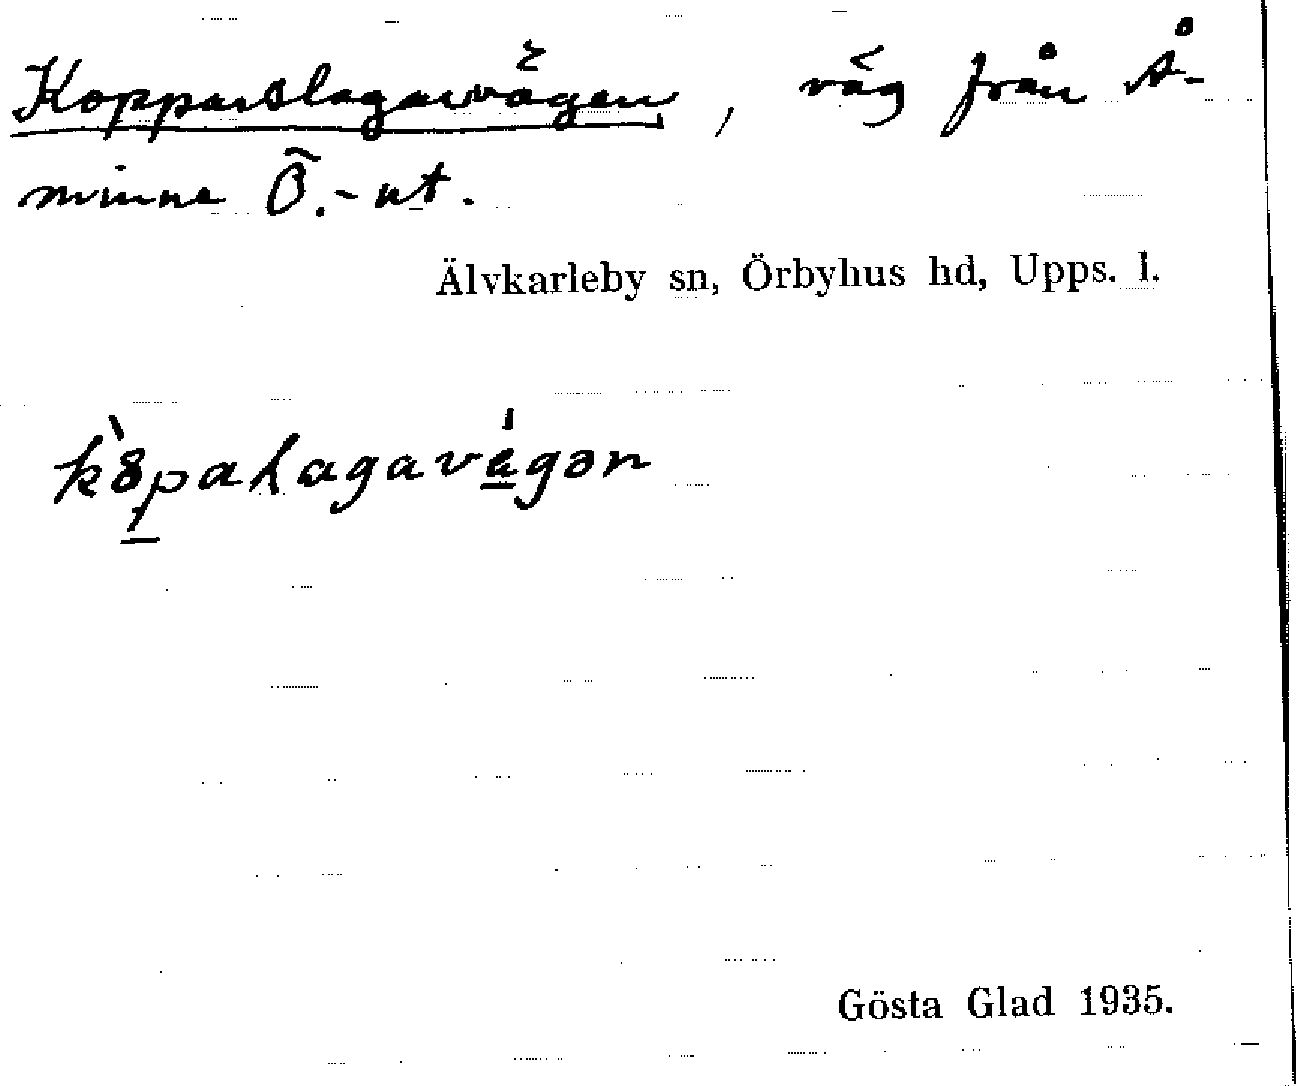 Kopparslagarvägen, väg från Å-
minne Ö.-ut.
Älvkarleby sn, Örbyhus hd, Upps. l.
Gösta Glad 1935.